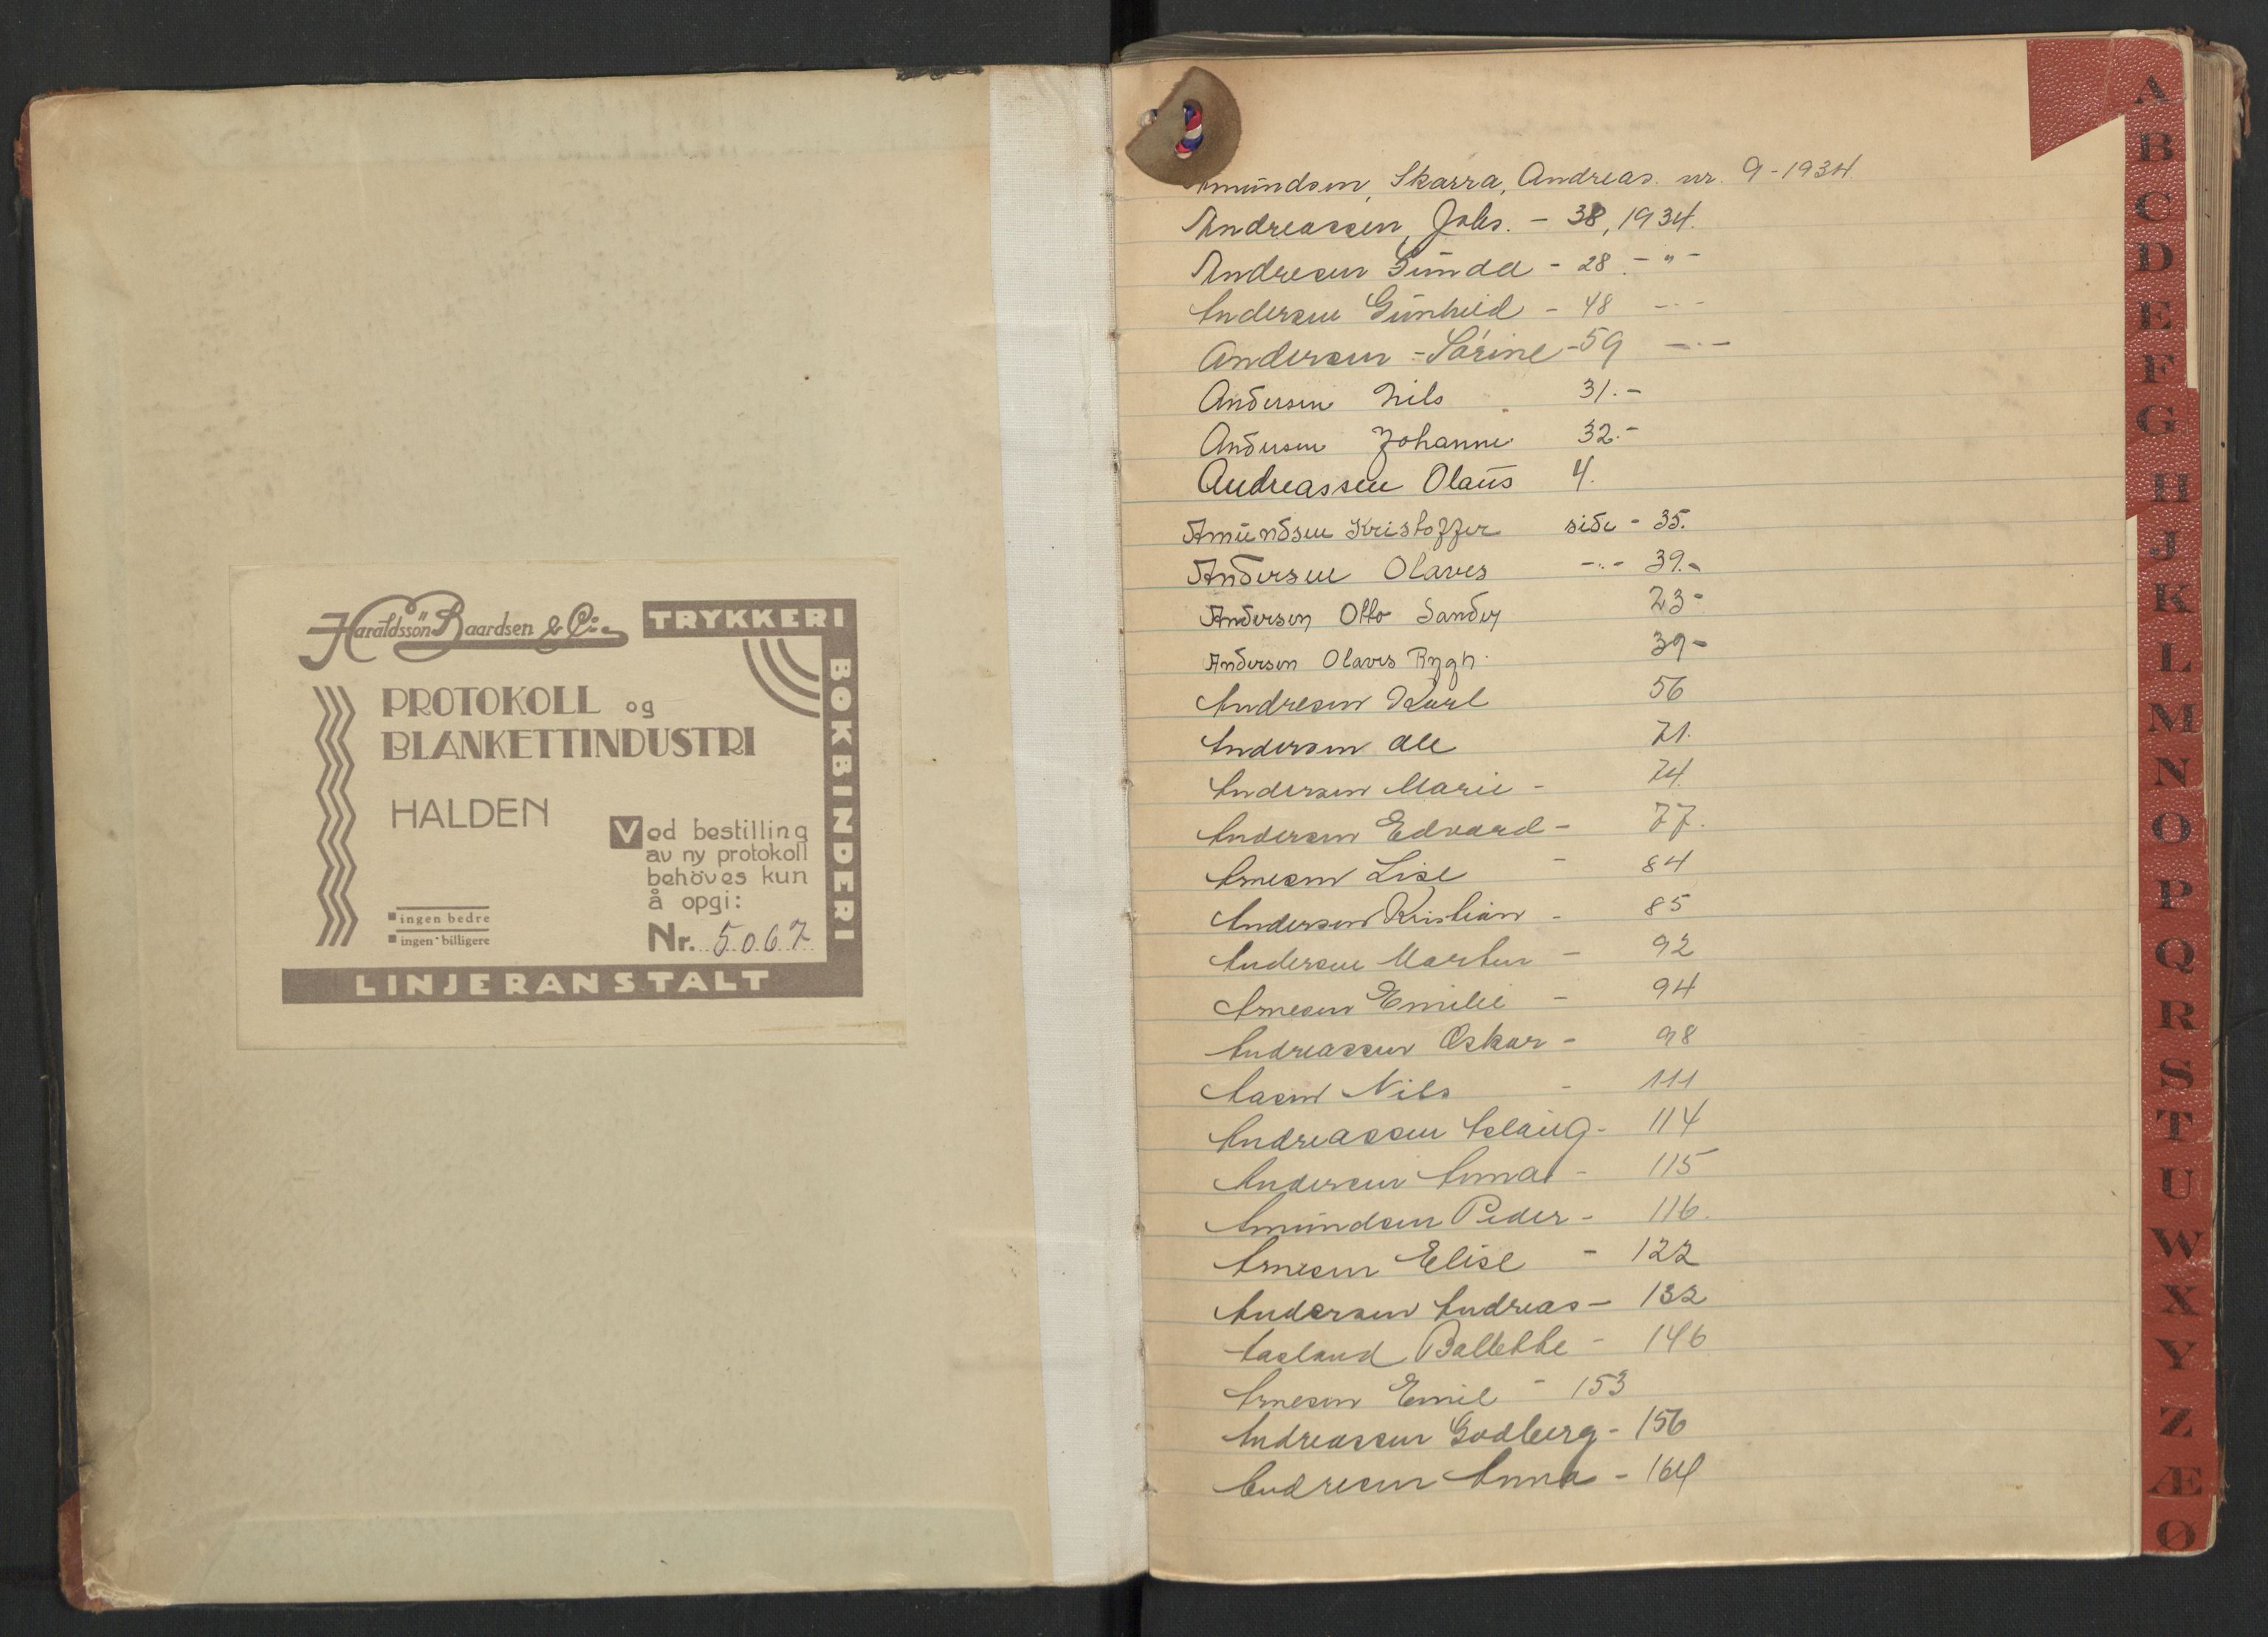 Haraldssön Baardsen & Co.
TRYKKERI
BOKBINDERI
PROTOKOLL og
BLANKETTINDUSTRI
HALDEN
Ved bestilling
av ny protokoll
behöves kun
å opgi:
Nr. 5067
ingen bedre
ingen billigere
LINJERANSTALT
Amundsen, Skarra, Andreas. nr. 9-1934
Andreassen, Johs. - 38, 1934.
Andresen Gunda - 28 - " -
Andersen Gunhild - 48 - " -
Andersen - Sörine - 59 - " -
Andersen Nils 31.-
Andersen Johanne 32.-
Andreassen Olaus 4.
Amundsen Kristoffer side - 35.
Andersen Olaves -"- 39.-
Andersen Otto Sander 23-
Andersen Olaves Rygh. 39-
Andresen Karl 56
Andersen Ole 71.
Andersen Marie - 74.
Andersen Edvard - 77.
Arnesen Lise - 84
Andersen Kristian - 85
Andersen Marten - 92
Arnesen Emilie - 94
Andreassen Oskar - 98
Aasen Nils - 111
Andreassen Aslaug - 114
Andersen Anna - 115
Amundsen Peder - 116.
Arnesen Elise - 122
Andersen Andreas - 132
Aasland Ballethe - 146
Arnesen Emil - 153
Andreassen Godberg - 156
Andresen Anna - 164
A
B
C
D
E
F
G
H
J
K
L
M
N
O
P
Q
R
S
T
U
W
X
Y
Z
Æ
Ø